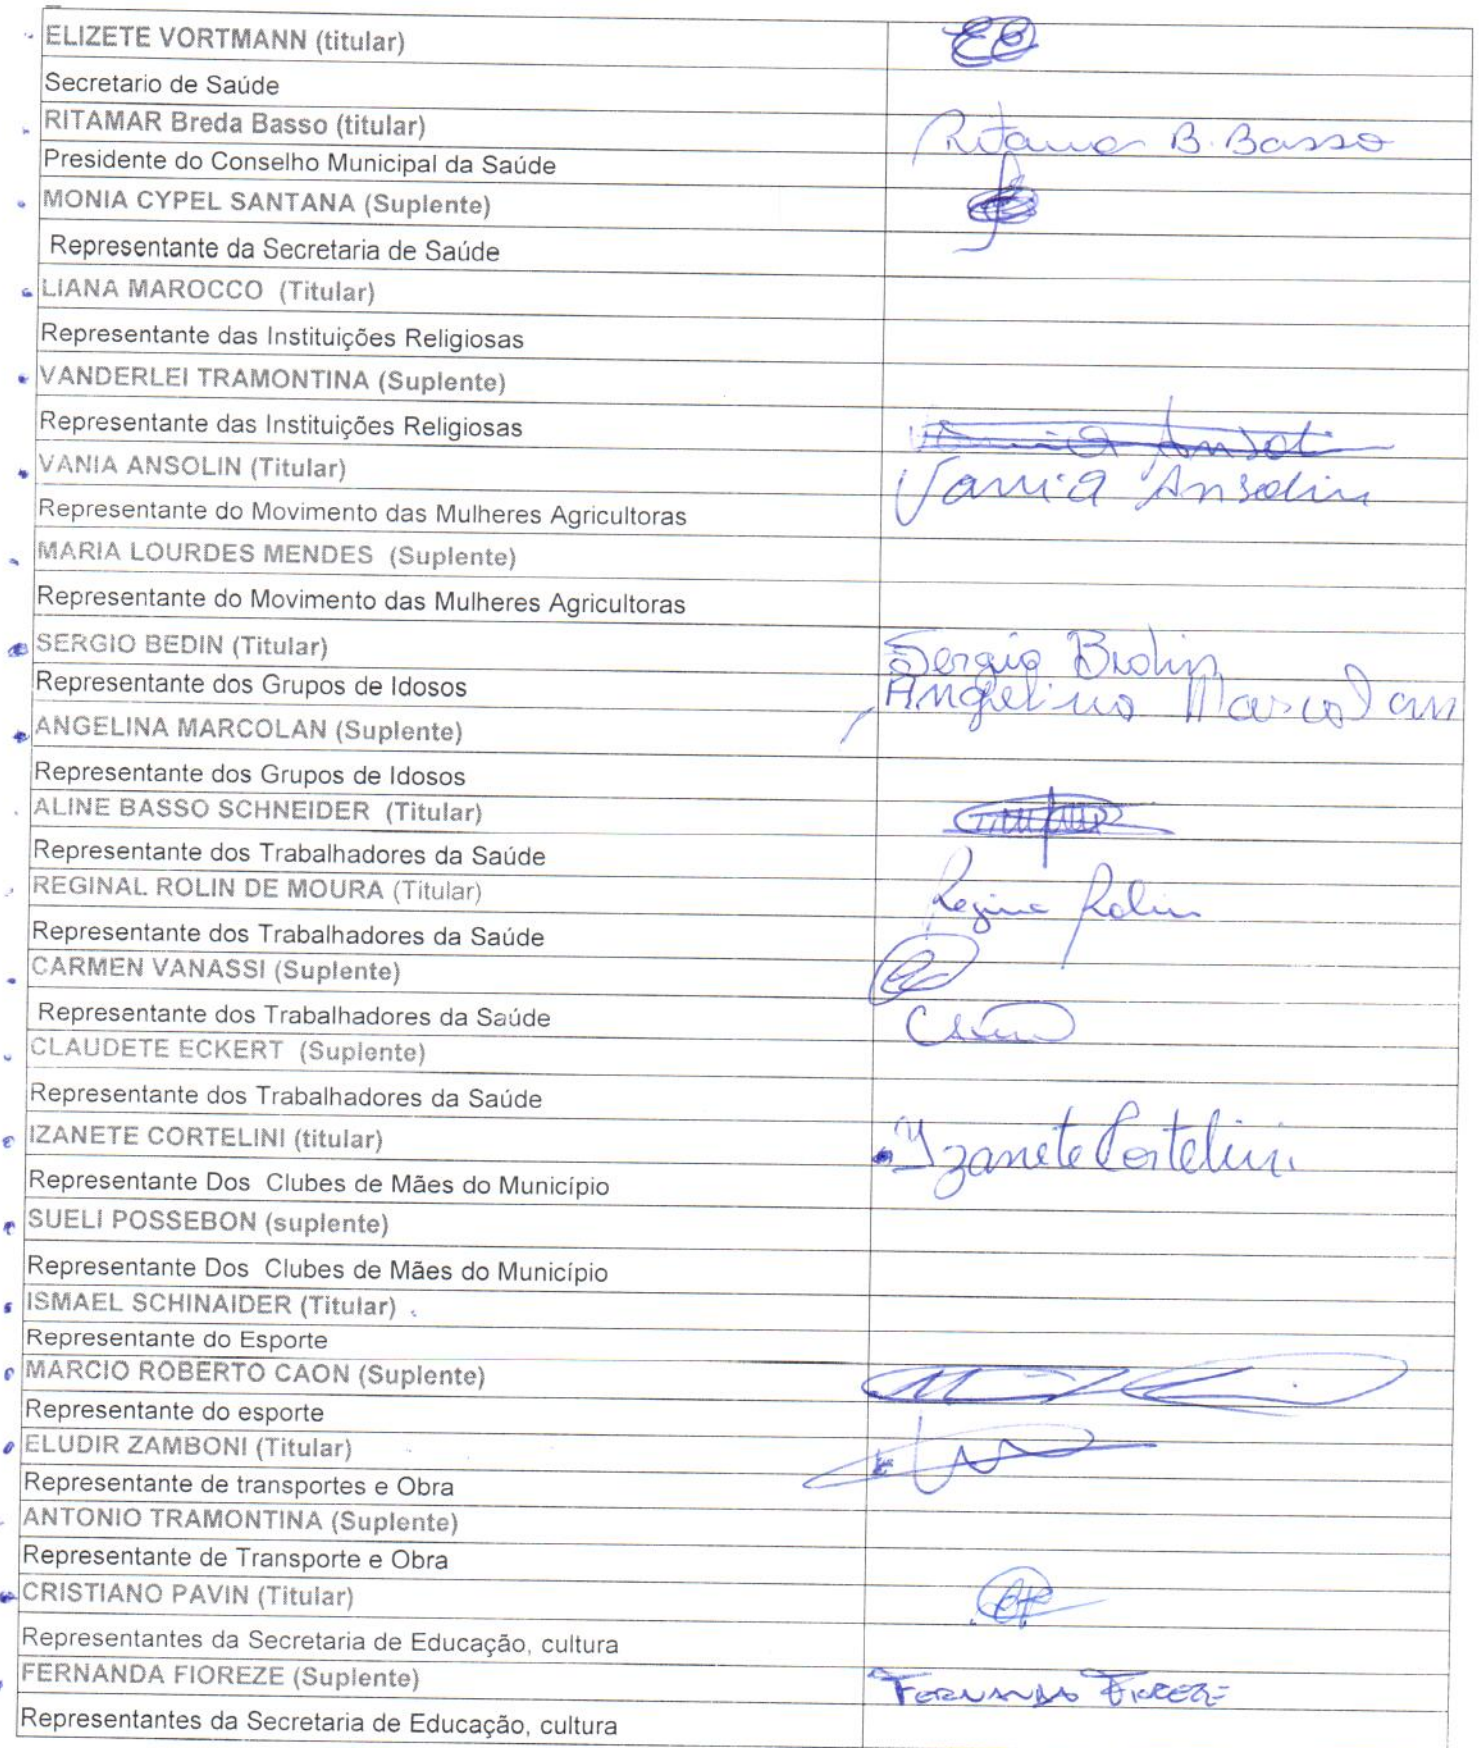 ELIZETE VORTMANN (titular)
Secretario de Saúde
RITAMAR Breda Basso (titular)
Ritamar B. Basso
Presidente do Conselho Municipal da Saúde
MONIA CYPEL SANTANA (Suplente)
Representante da Secretaria de Saúde
LIANA MAROCCO (Titular)
Representante das Instituições Religiosas
VANDERLEI TRAMONTINA (Suplente)
Representante das Instituições Religiosas
VANIA ANSOLIN (Titular)
Vania Ansolin
Representante do Movimento das Mulheres Agricultoras
MARIA LOURDES MENDES (Suplente)
Representante do Movimento das Mulheres Agricultoras
SERGIO BEDIN (Titular)
Sergio
Representante dos Grupos de Idosos
Angelina Marcolan
ANGELINA MARCOLAN (Suplente)
Representante dos Grupos de Idosos
ALINE BASSO SCHNEIDER (Titular)
Representante dos Trabalhadores da Saúde
REGINAL ROLIN DE MOURA (Titular)
Regina Rolin
Representante dos Trabalhadores da Saúde
CARMEN VANASSI (Suplente)
Representante dos Trabalhadores da Saúde
CLAUDETE ECKERT (Suplente)
Representante dos Trabalhadores da Saúde
IZANETE CORTELINI (titular)
Izanete Cortelini
Representante Dos Clubes de Mães do Município
SUELI POSSEBON (suplente)
Representante Dos Clubes de Mães do Município
ISMAEL SCHINAIDER (Titular)
Representante do Esporte
MARCIO ROBERTO CAON (Suplente)
Representante do esporte
ELUDIR ZAMBONI (Titular)
Representante de transportes e Obra
ANTONIO TRAMONTINA (Suplente)
Representante de Transporte e Obra
CRISTIANO PAVIN (Titular)
Representantes da Secretaria de Educação, cultura
FERNANDA FIOREZE (Suplente)
FERNANDA FIOREZE
Representantes da Secretaria de Educação, cultura